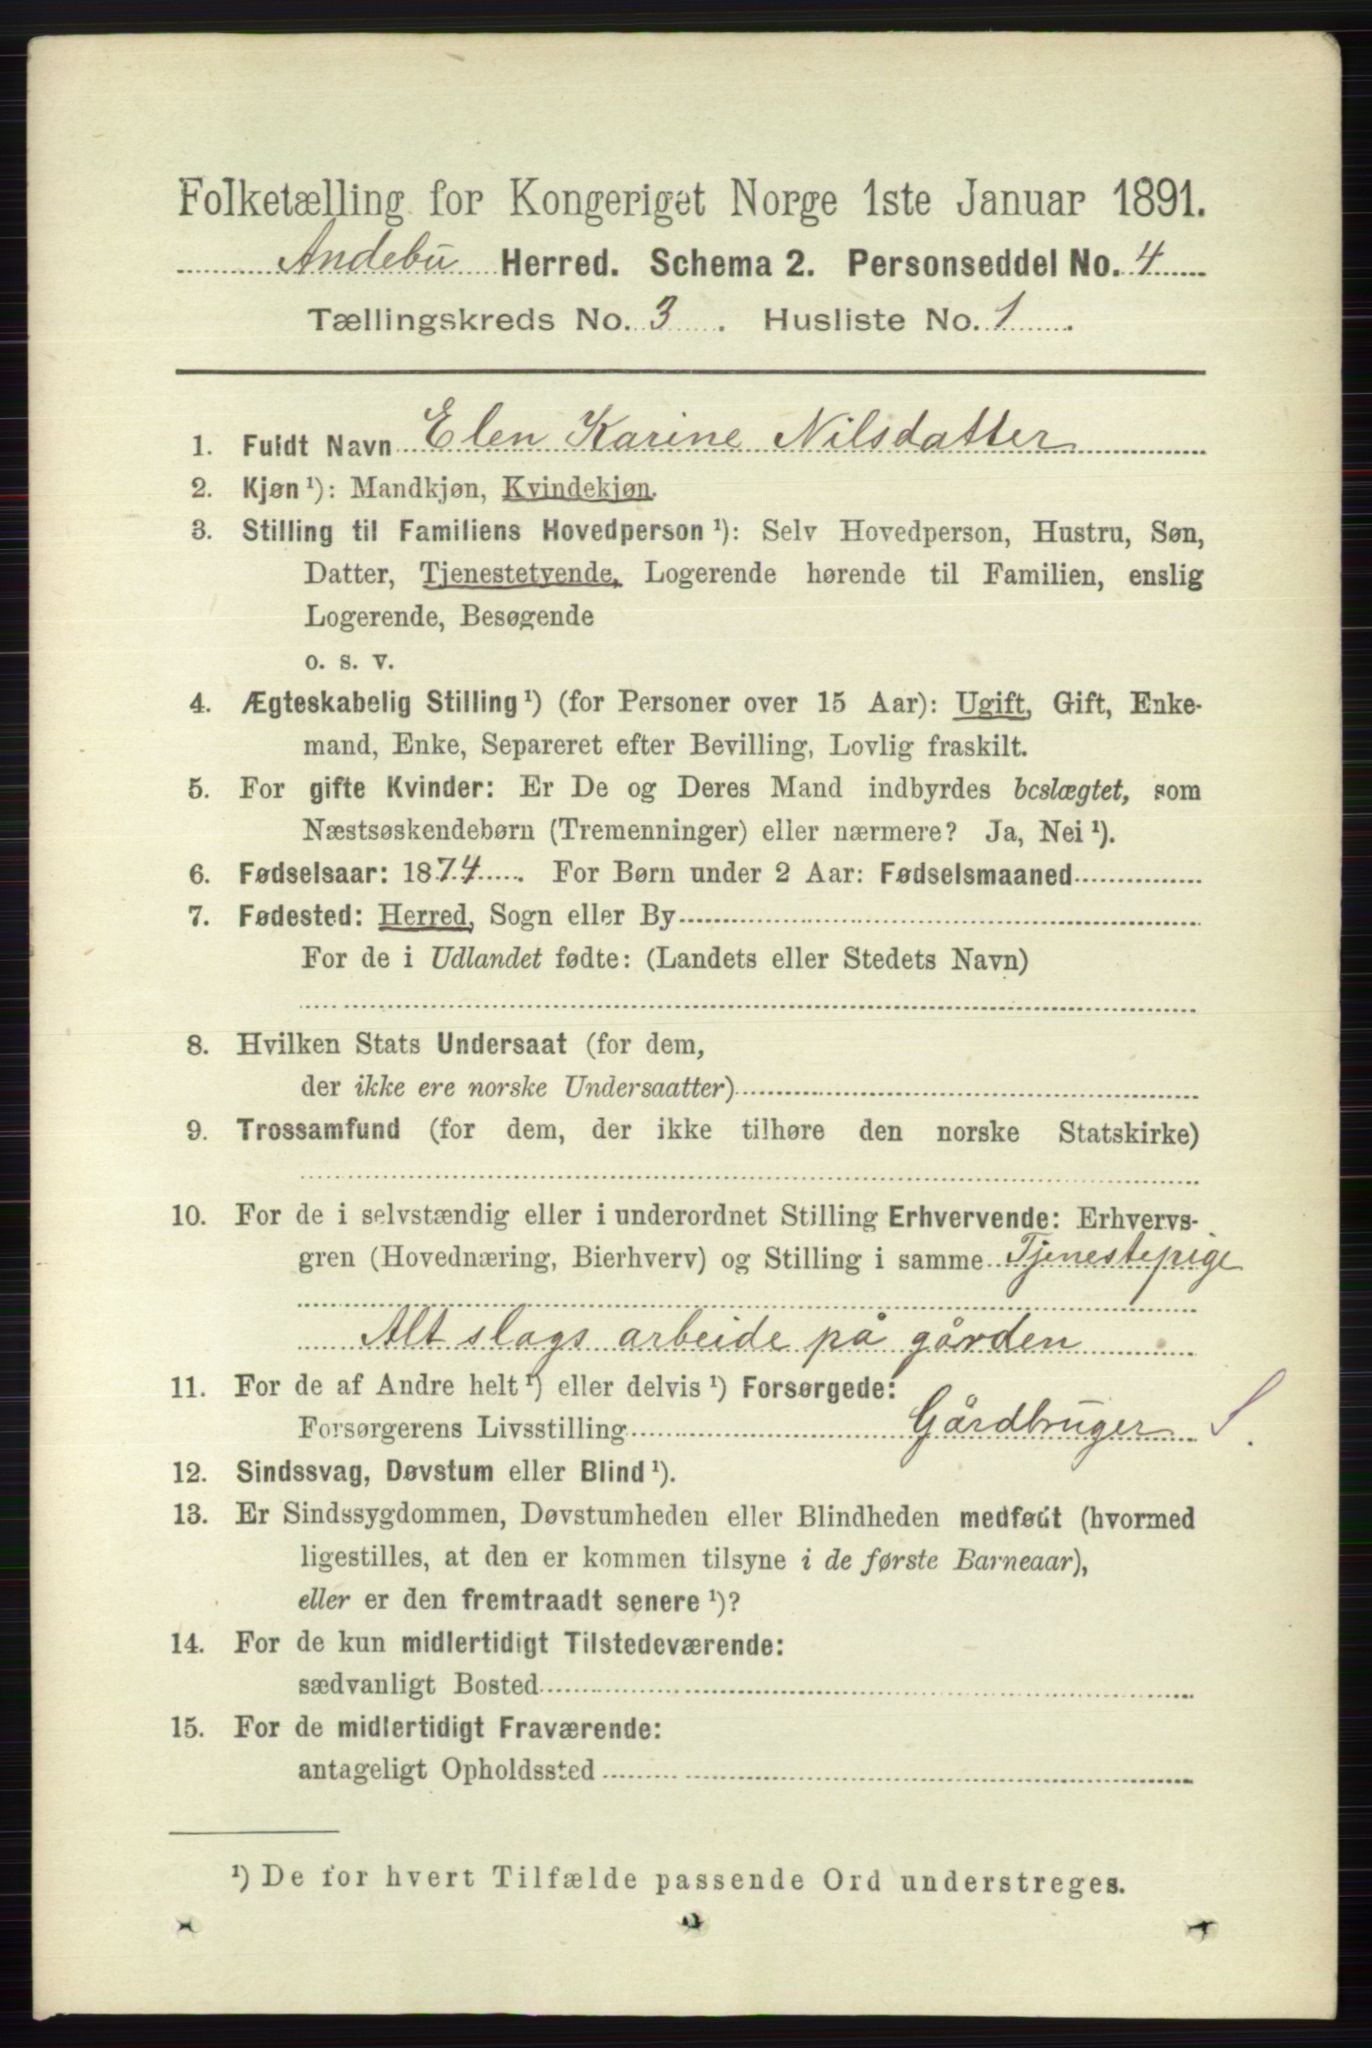 Folketælling for Kongeriget Norge 1ste Januar 1891.
Andebu Herred. Schema 2. Personseddel No. 4
Tællingskreds No. 3. Husliste No. 1.
1. Fuldt Navn Elen Karine Nilsdatter
2. Kjøn ¹): Mandkjøn, Kvindekjøn.
3. Stilling til Familiens Hovedperson ¹): Selv Hovedperson, Hustru, Søn,
Datter, Tjenestetyende, Logerende hørende til Familien, enslig
Logerende, Besøgende
o. s. v.
4. Ægteskabelig Stilling ¹) (for Personer over 15 Aar): Ugift, Gift, Enke-
mand, Enke, Separeret efter Bevilling, Lovlig fraskilt.
5. For gifte Kvinder: Er De og Deres Mand indbyrdes beslægtet, som
Næstsøskendebørn (Tremenninger) eller nærmere? Ja, Nei ¹).
6. Fødselsaar: 1874. For Børn under 2 Aar: Fødselsmaaned
7. Fødested: Herred, Sogn eller By
For de i Udlandet fødte: (Landets eller Stedets Navn)
8. Hvilken Stats Undersaat (for dem,
der ikke ere norske Undersaatter)
9. Trossamfund (for dem, der ikke tilhøre den norske Statskirke)
10. For de i selvstændig eller i underordnet Stilling Erhvervende: Erhvervs-
gren (Hovednæring, Bierhverv) og Stilling i samme Tjenestepige
Alt slags arbeide på gården
11. For de af Andre helt ¹) eller delvis ¹) Forsørgede:
Forsørgerens Livsstilling Gårdbruger S.
12. Sindssvag, Døvstum eller Blind ¹).
13. Er Sindssygdommen, Døvstumheden eller Blindheden medfødt (hvormed
ligestilles, at den er kommen tilsyne i de første Barneaar),
eller er den fremtraadt senere ¹)?
14. For de kun midlertidigt Tilstedeværende:
sædvanligt Bosted
15. For de midlertidigt Fraværende:
antageligt Opholdssted
¹) De for hvert Tilfælde passende Ord understreges.